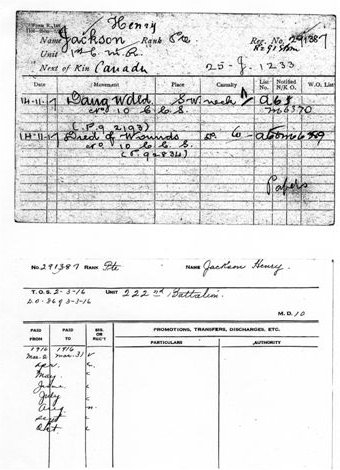 Henry
Name Jackson Rank Pte Reg. No. 291387
Unit 1st C.M.R.
Next of Kin Canada 25-J.1233
Date Movement Place Casualty List No. Notified N/K O. W.O. List
14-11-17 Dang Wded SW neck A68
No 10 C.C.S. M6370
(C.P.9 2193)
14-11-17 Died of Wounds do
No 10 C.C.S.
Papers
No. 291387 RANK Pte NAME Jackson Henry.
T.O.S. 2-3-16 UNIT 222nd Battalion.
D.O. 869 3-3-16
M. D. 10
PAID FROM PAID TO SIG. OR REC'T PROMOTIONS, TRANSFERS, DISCHARGES, ETC.
PARTICULARS AUTHORITY
1916 1916
Mar. 2 Mar. 31
Apr.
May.
June
July
Aug
Sept
Oct